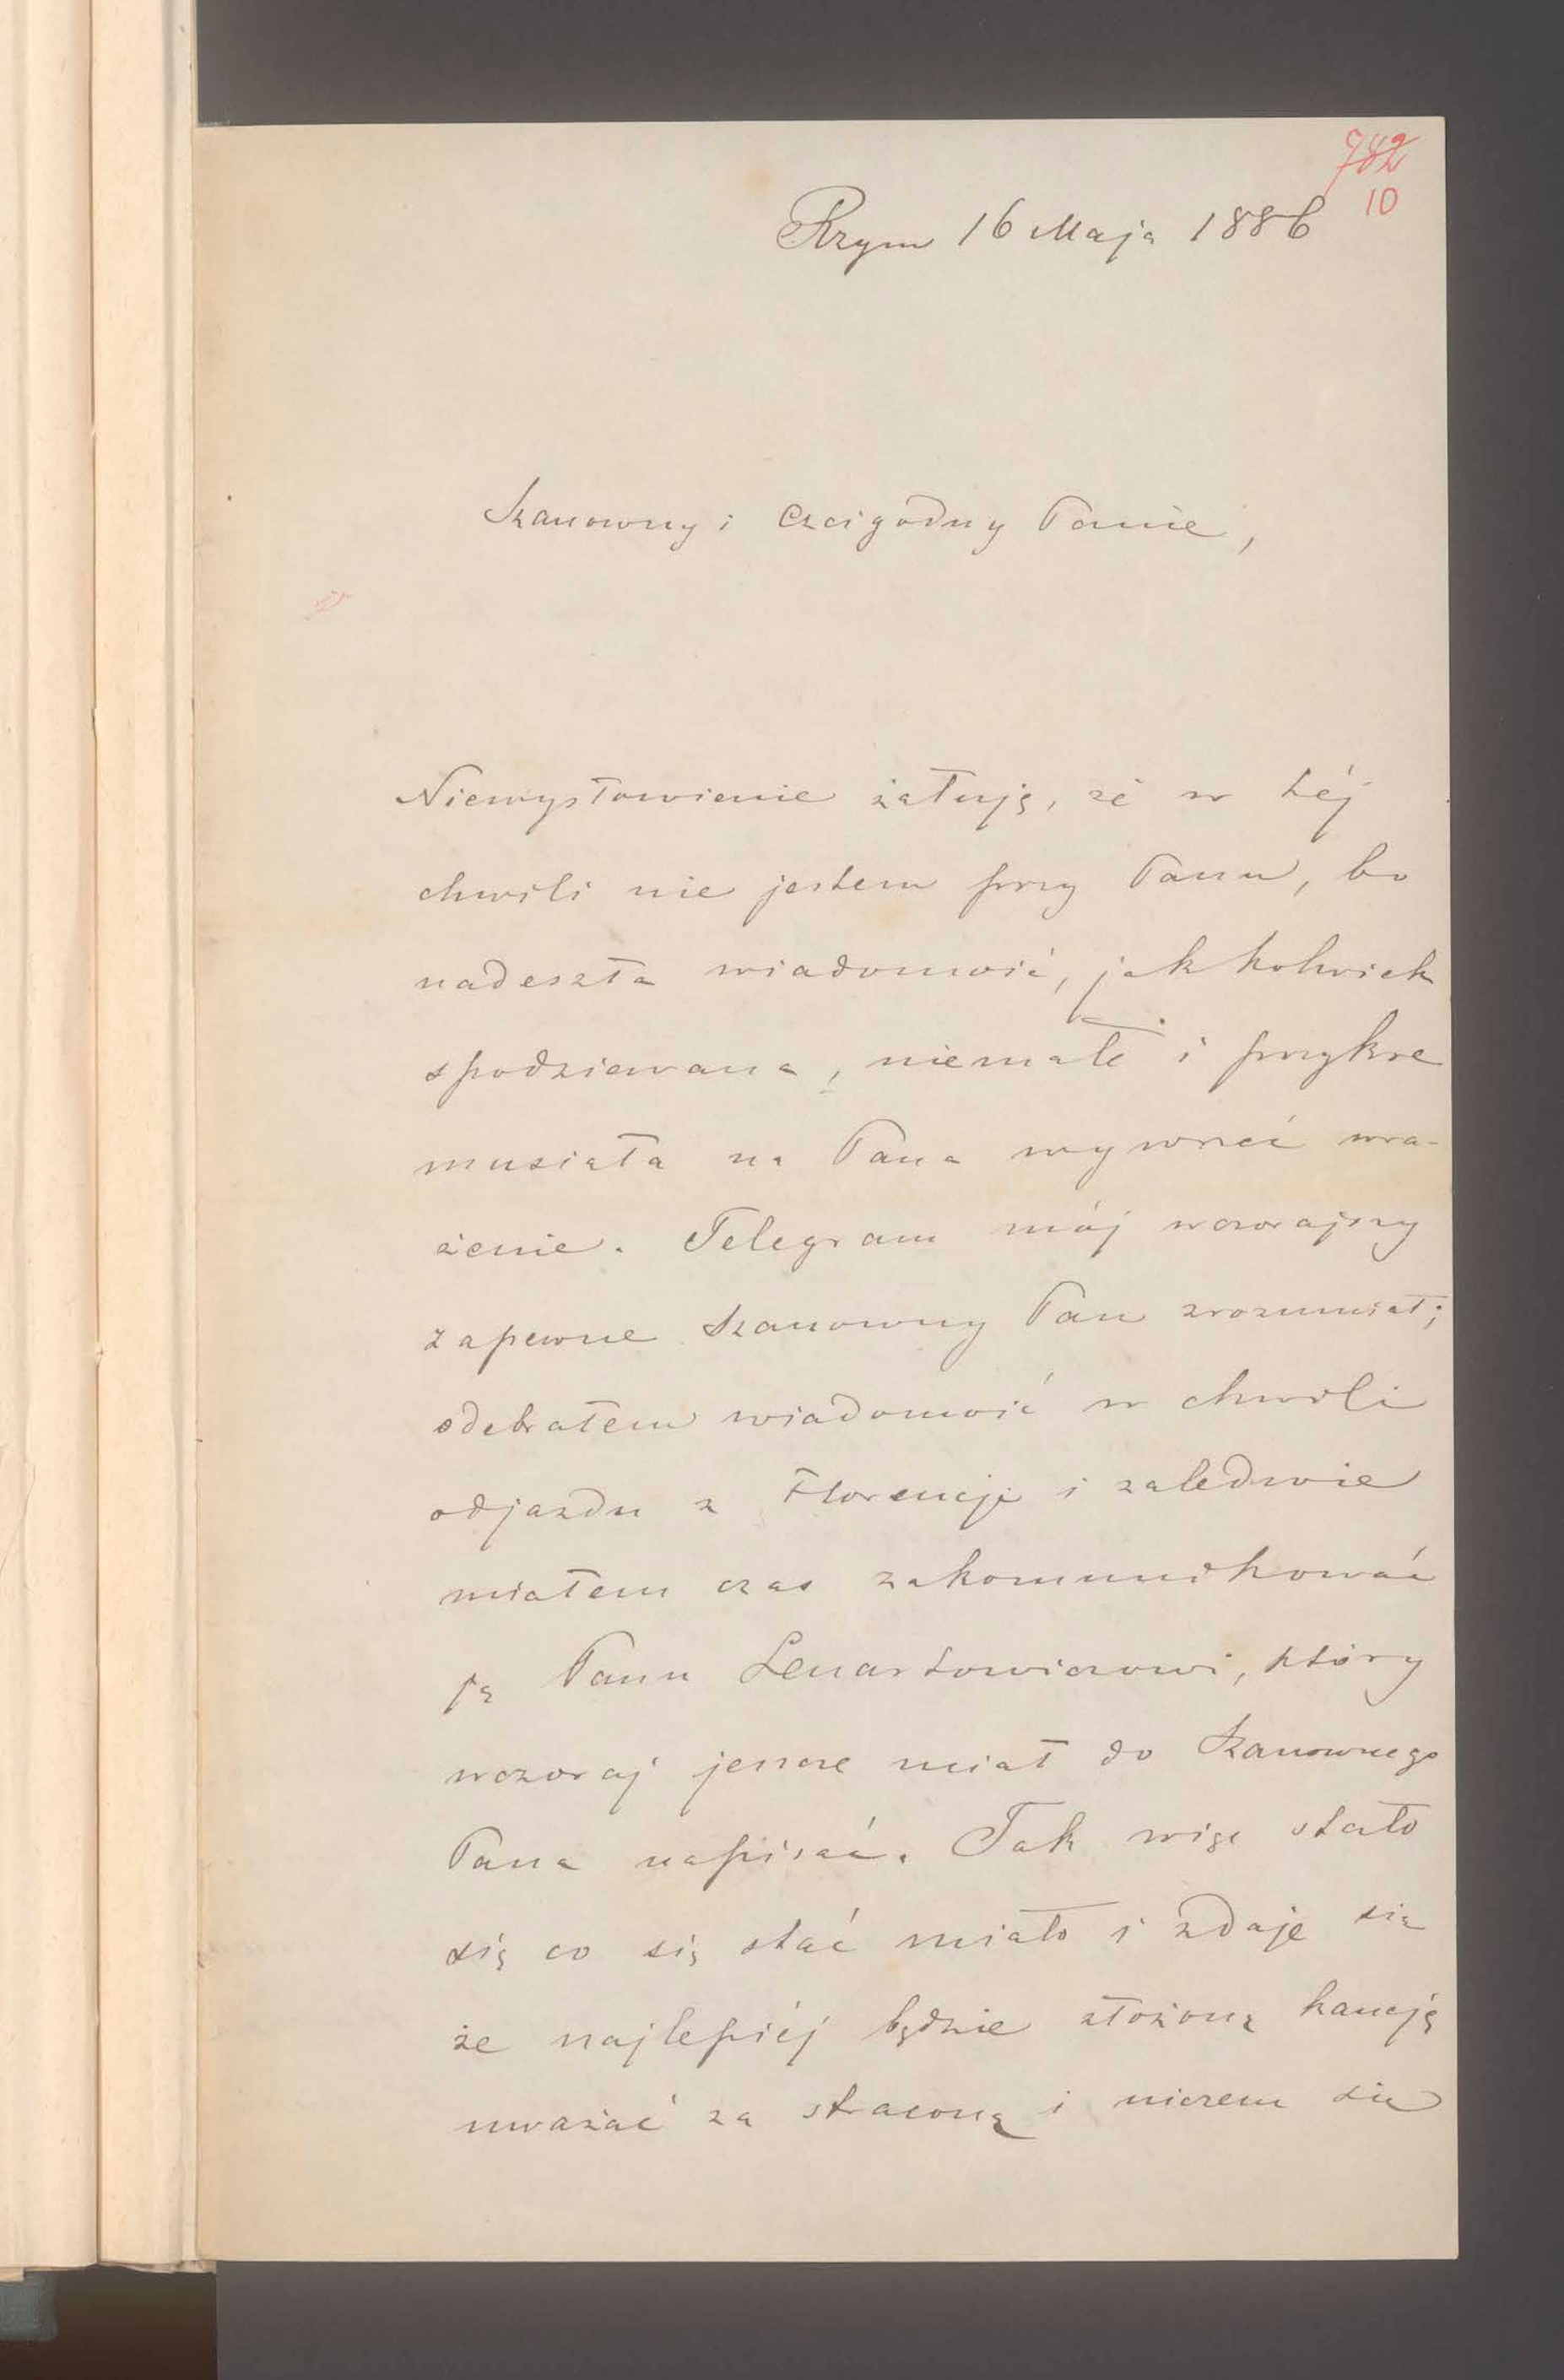 782
10
Rzym 16 Maja 1886
Szanowny i Czcigodny Panie,
Niewysłowienie żałuję, że w téj
chwili nie jestem przy Panu, bo
nadeszła wiadomość, jakkolwiek
spodziewana, niemałe i przykre
musiała na Pana wywrzeć wra-
żenie. Telegram mój wczorajszy
zapewne Szanowny Pan zrozumiał;
odebrałem wiadomość w chwili
odjazdu z Florencji i zaledwie
miałem czas zakommunikować
ją Panu Lenartowiczowi, który
wczoraj jeszcze miał do Szanownego
Pana napisać. Tak więc stało
się co się stać miało i zdaje się
że najlepiéj będzie złożoną kaucję
uważać za straconą i niczem się